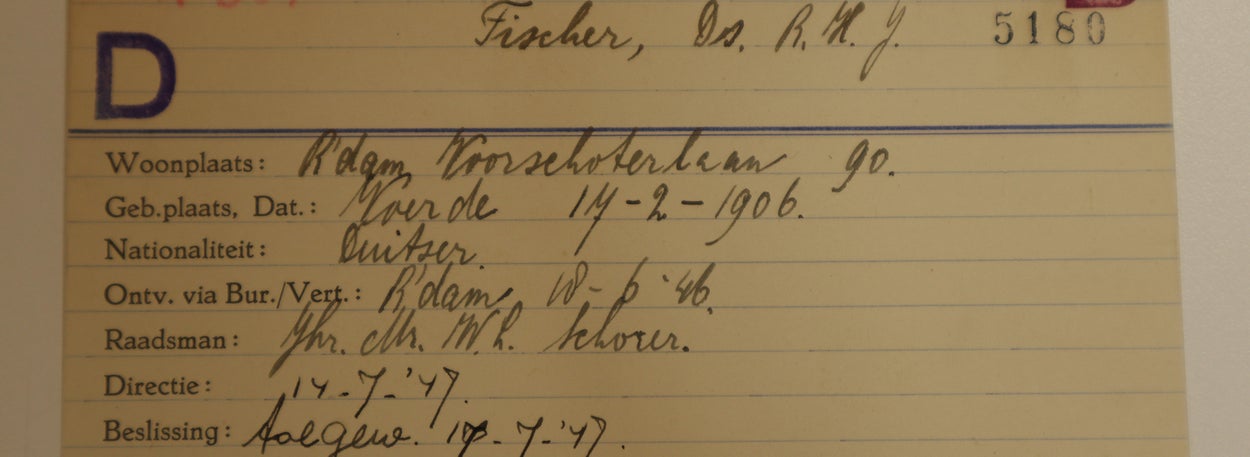 Fischer, Ds. R. H. J. 5180
D
Woonplaats: R'dam Voorschoterlaan 90.
Geb.plaats, Dat.: Voerde 17-2-1906.
Nationaliteit: Duitser.
Ontv. via Bur./Vert.: R'dam 18-6-'46.
Raadsman: Jhr. Mr. W.h. Schorer.
Directie: 14-7-'47.
Beslissing: Toegew. 17-7-'47.